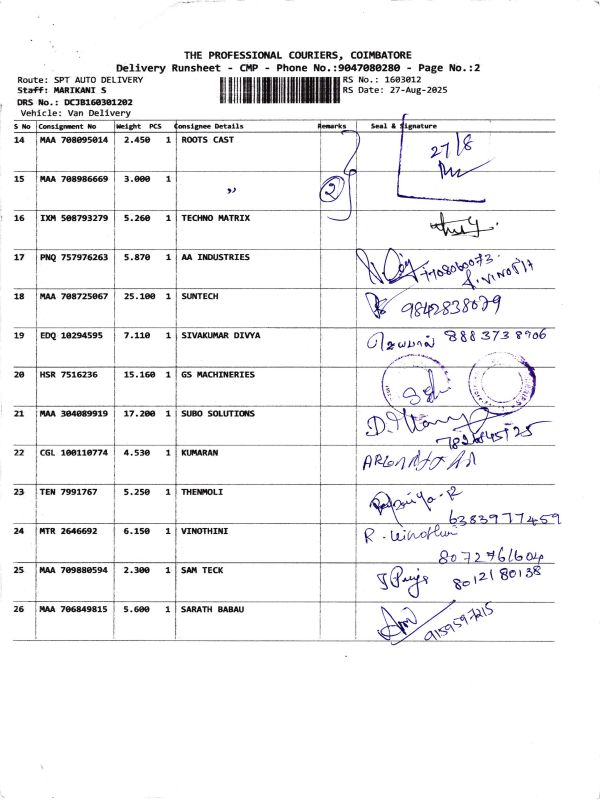 THE PROFESSIONAL COURIERS, COIMBATORE
Delivery Runsheet - CMP - Phone No.:9047080280 - Page No.:2
Route: SPT AUTO DELIVERY RS No.: 1603012
Staff: MARIKANI S RS Date: 27-Aug-2025
DRS No.: DCJB160301202
Vehicle: Van Delivery
S No Consignment No Weight PCS Consignee Details Remarks Seal & Signature
14 MAA 708095014 2.450 1 ROOTS CAST 27/8
15 MAA 708986669 3.000 1 ,, 2
16 IXM 508793279 5.260 1 TECHNO MATRIX
17 PNQ 757976263 5.870 1 AA INDUSTRIES
18 MAA 708725067 25.100 1 SUNTECH 9842838079
19 EDQ 10294595 7.110 1 SIVAKUMAR DIVYA 8883738906
20 HSR 7516236 15.160 1 GS MACHINERIES
21 MAA 304089919 17.200 1 SUBO SOLUTIONS
22 CGL 100110774 4.530 1 KUMARAN
23 TEN 7991767 5.250 1 THENMOLI
6383977459
24 MTR 2646692 6.150 1 VINOTHINI R
8072761604
25 MAA 709880594 2.300 1 SAM TECK 8012180138
26 MAA 706849815 5.600 1 SARATH BABAU
9159597215